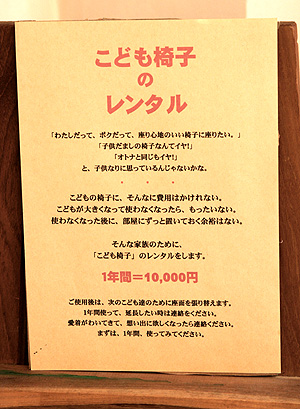 こども椅子
の
レンタル
「わたしだって、ボクだって、座り心地のいい椅子に座りたい。」
「子供だましの椅子なんてイヤ!」
「オトナと同じもイヤ!」
と、子供なりに思っているんじゃないかな。
・ ・ ・
こどもの椅子に、そんなに費用はかけれない。
こどもが大きくなって使わなくなったら、もったいない。
使わなくなった後に、部屋にずっと置いておく余裕はない。
そんな家族のために、
「こども椅子」のレンタルをします。
1年間=10,000円
ご使用後は、次のこども達のために座面を張り替えます。
1年間使って、延長したい時は連絡をください。
愛着がわいてきて、想い出に欲しくなったら連絡ください。
まずは、1年間、使ってみてください。